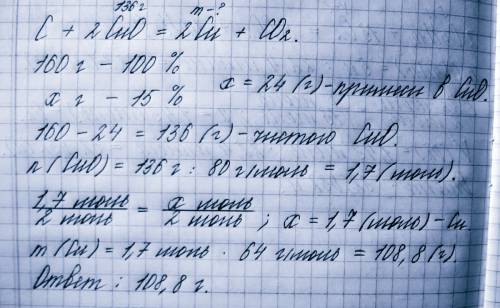 136 г m - ?
C + 2 CuO = 2 Cu + CO₂.
160 г - 100 %
x г - 15 %
x = 24 (г) - примеси в CuO.
160 - 24 = 136 (г) - чистого CuO.
n (CuO) = 136 г : 80 г/моль = 1,7 (моль).
1,7 моль / 2 моль = x моль / 2 моль ; x = 1,7 (моль) - Cu
m (Cu) = 1,7 моль · 64 г/моль = 108,8 (г).
Ответ : 108,8 г.